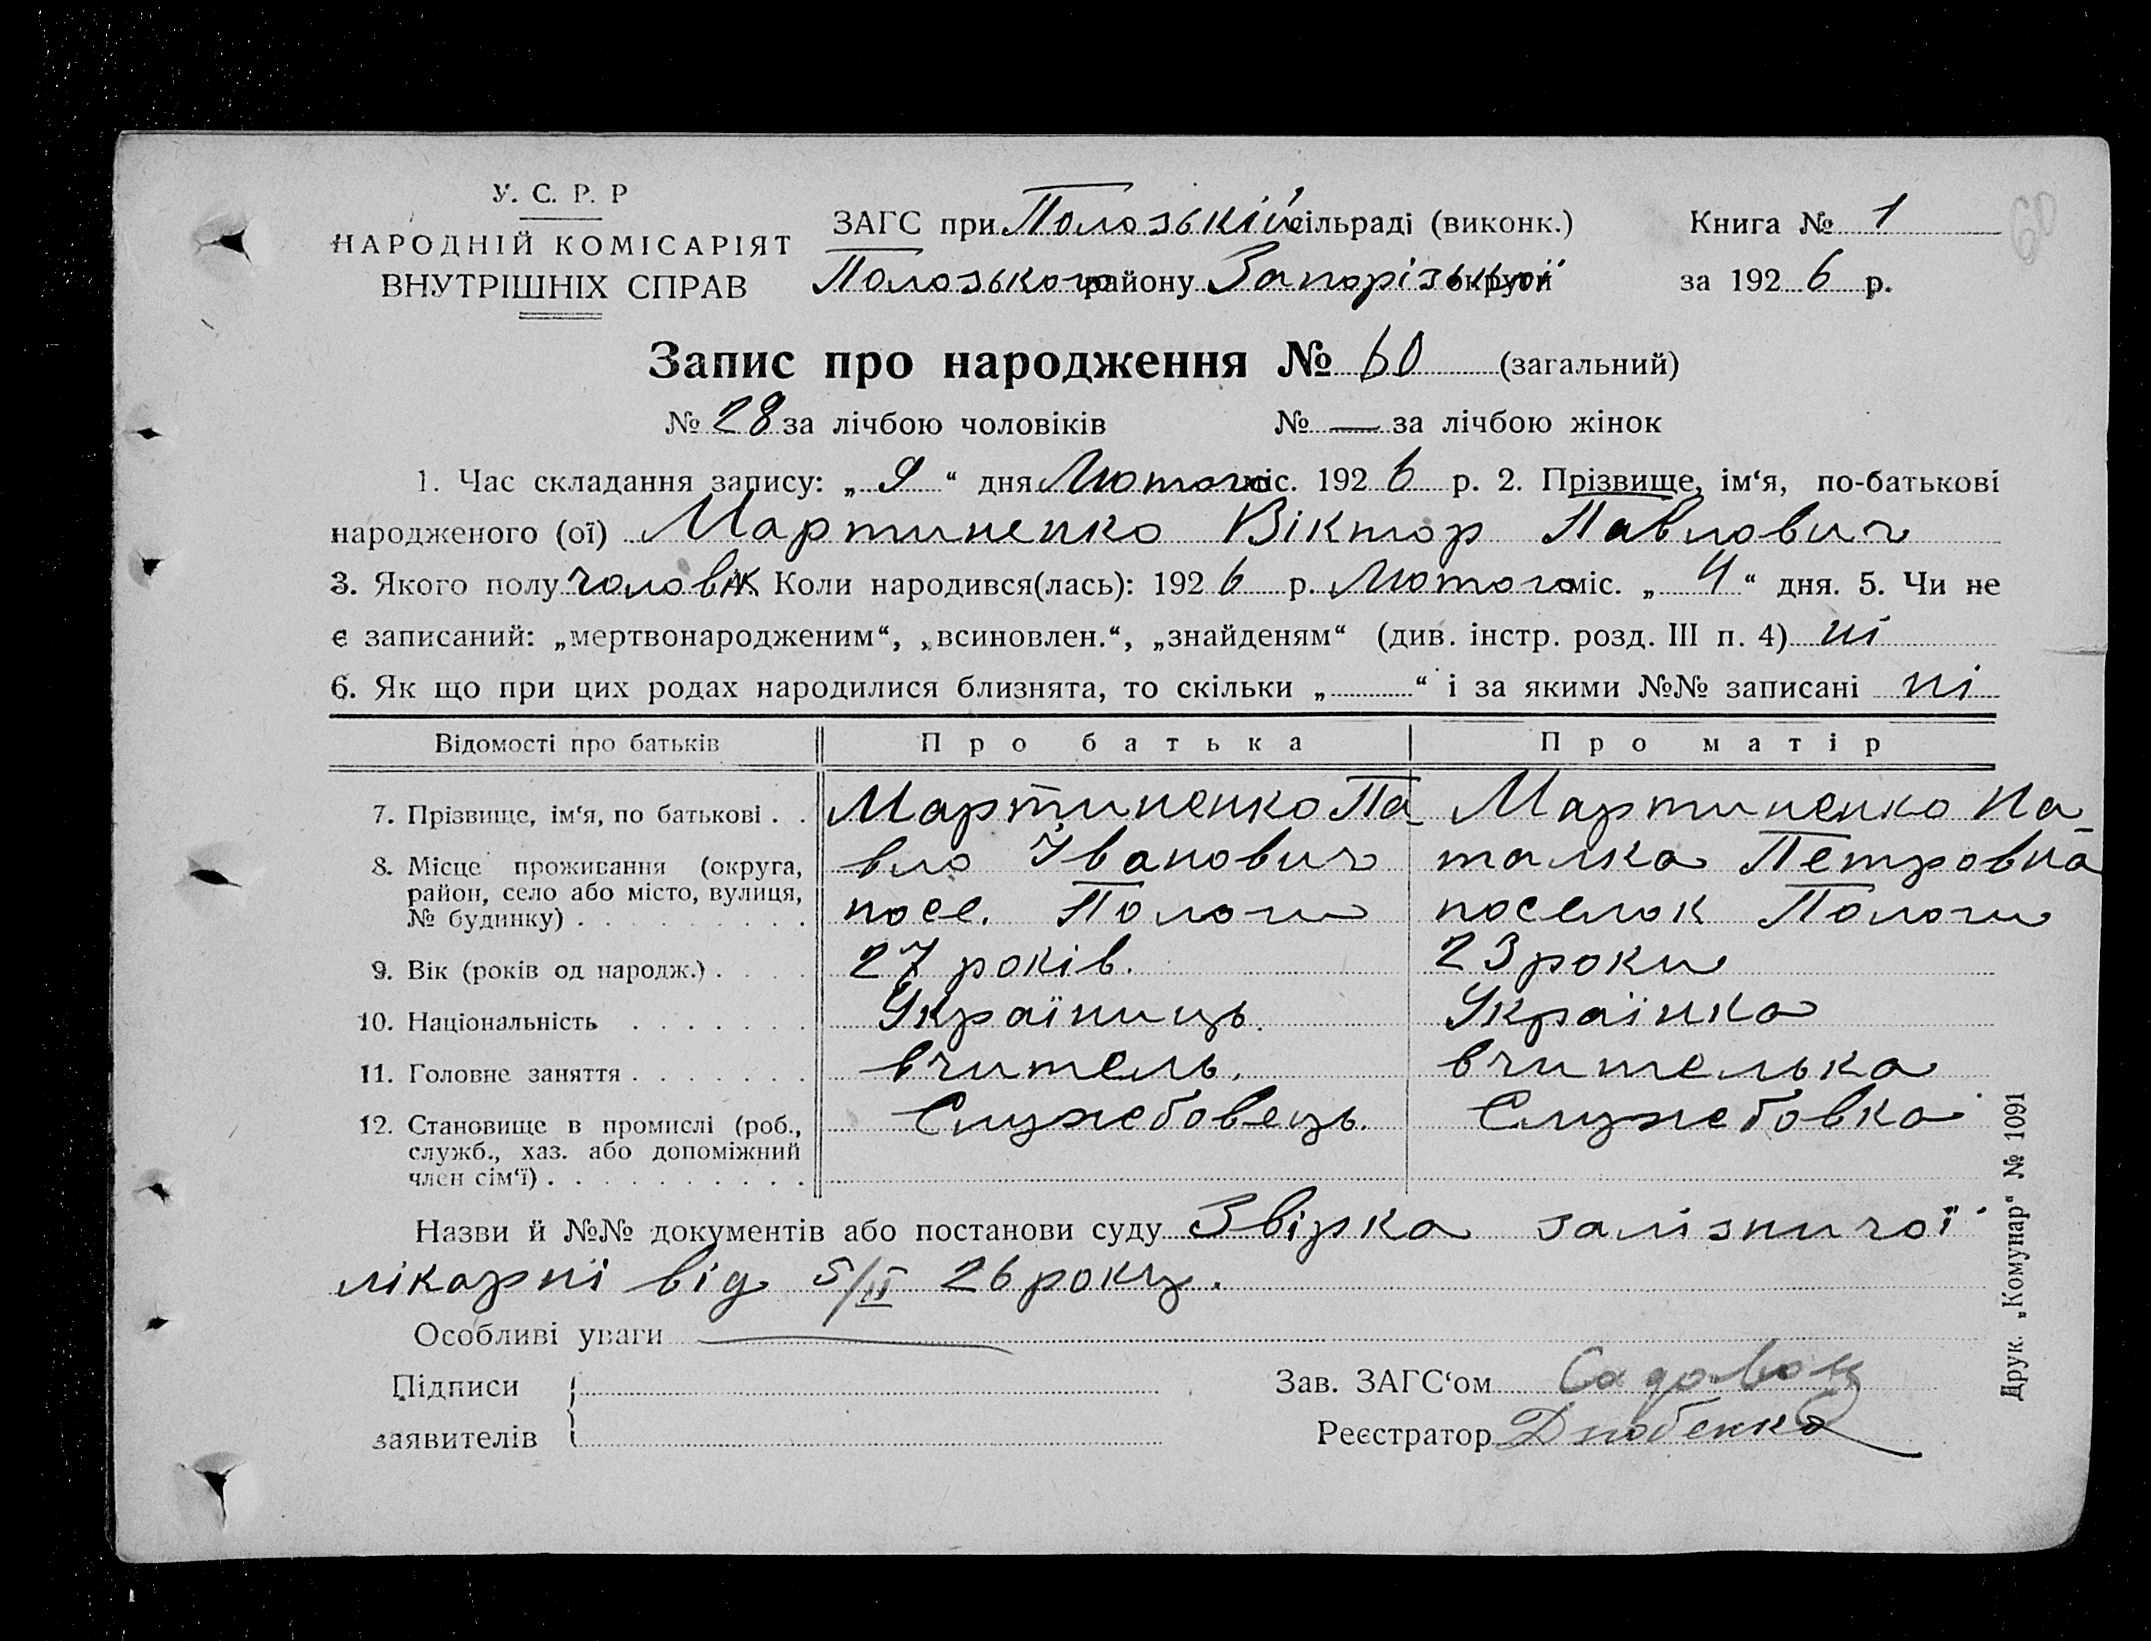 У. С. Р. Р
НАРОДНІЙ КОМІСАРІЯТ
ВНУТРІШНІХ СПРАВ
ЗАГС при Полозькій сільраді (виконк.)
Полозького району Запорізької округи
Книга № 1
за 1926 р.
60
Запис про народження № 60 (загальний)
№ 28 за лічбою чоловіків № — за лічбою жінок
1. Час складання запису: „ 9 “ дня Лютого міс. 1926 р. 2. Прізвище, ім‘я, по-батькові
народженого (ої) Мартиненко Віктор Павлович
3. Якого полу чоловік 4. Коли народився(лась): 1926 р. Лютого міс. „ 4 “ дня. 5. Чи не
є записаний: „мертвонародженим“, „всиновлен.“, „знайденям“ (див. інстр. розд. III п. 4) ні
6. Як що при цих родах народилися близнята, то скільки „ “ і за якими №№ записані ні
Відомості про батьків Про батька Про матір
7. Прізвище, ім‘я, по батькові . . Мартиненко Па Мартиненко На-
вло Іванович талка Петровна
8. Місце проживання (округа,
район, село або місто, вулиця,
№ будинку) . . . . . . . . . посе. Пологи поселок Пологи
9. Вік (років од народж.) . . . . 27 років. 23 роки
10. Національність . . . . . . . Україниць. Українка
11. Головне заняття . . . . . . . вчитель. вчителька
12. Становище в промислі (роб., Службовець. Службовка
служб., хаз. або допоміжний
член сім‘ї) . . . . . . . . . .
Назви й №№ документів або постанови суду Звірка залізничої
лікарні від 5/II 26 року.
Особливі уваги
Підписи
заявителів
Зав. ЗАГС‘ом
Реєстратор
Друк. „Комунар“ № 1091